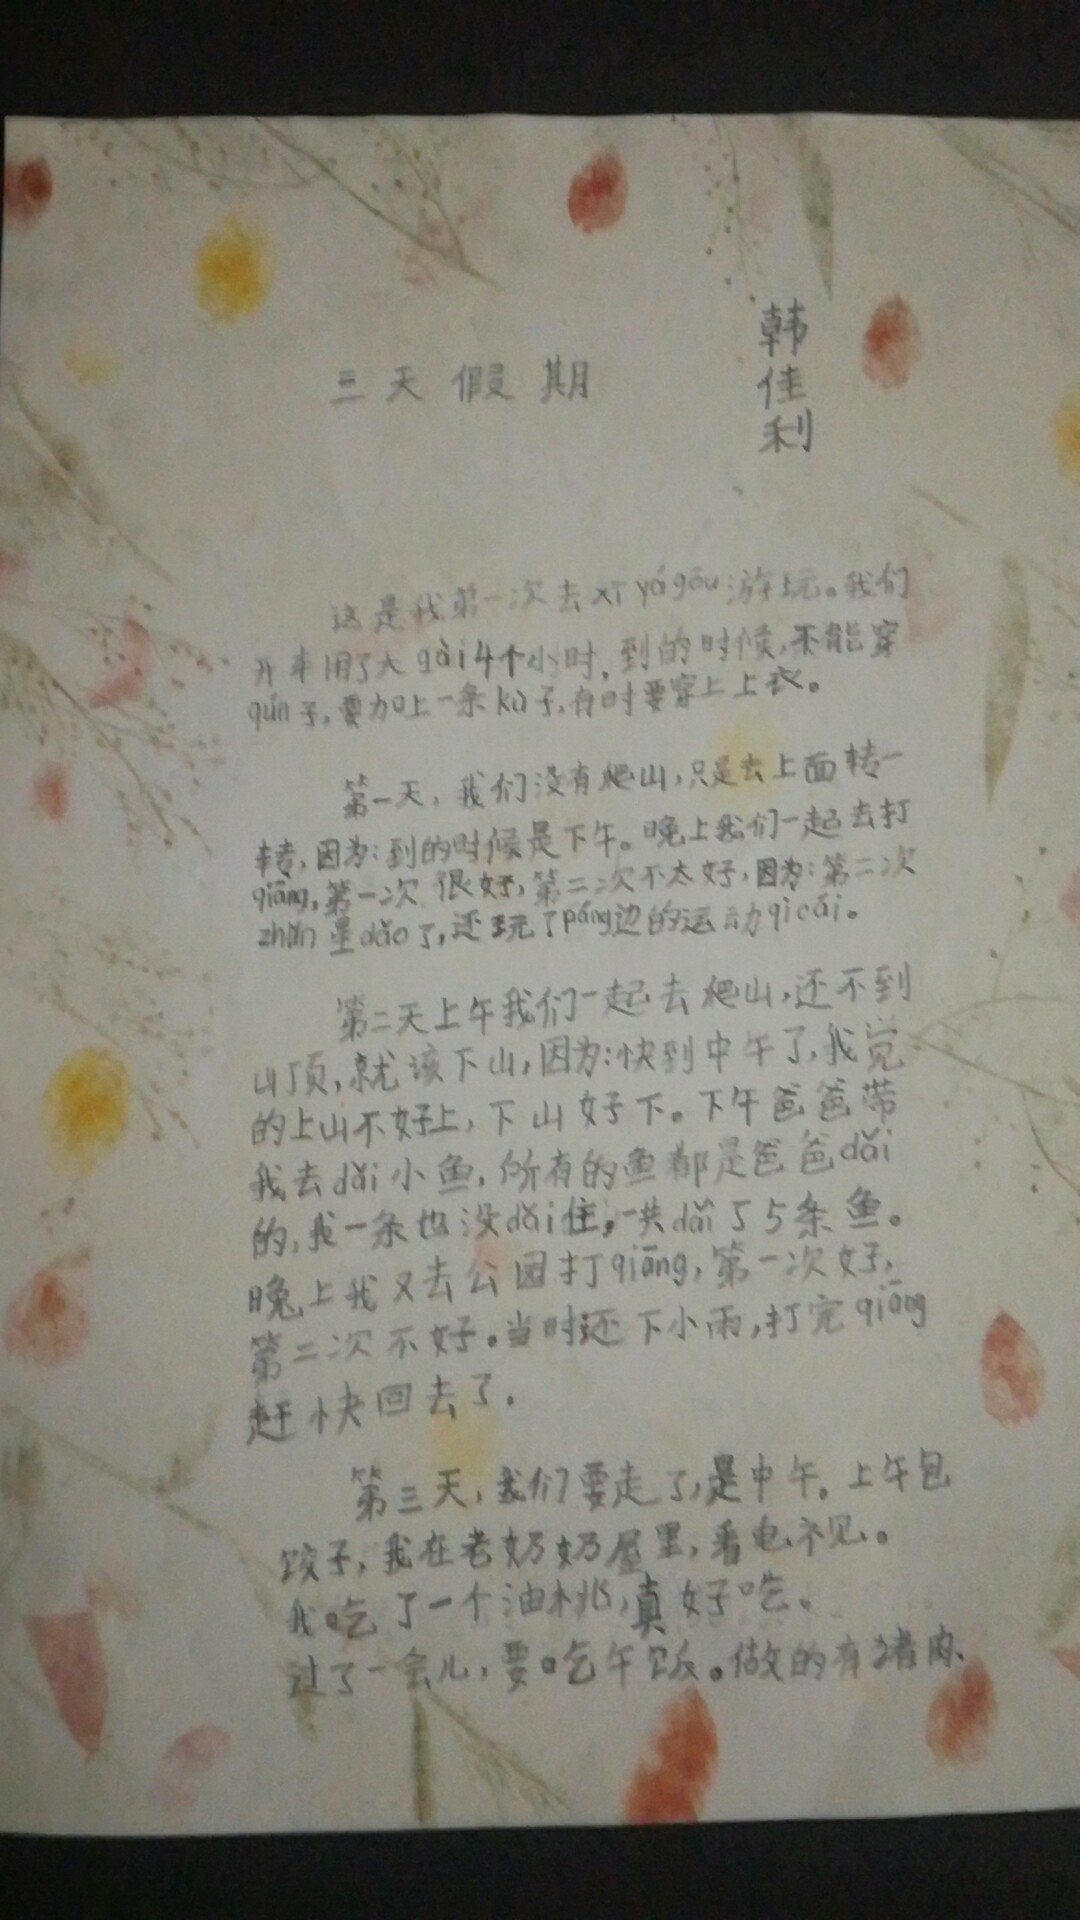 三天假期
韩佳利
这是我第一次去xī yá gōu游玩。我们
开车用了大gài4个小时，到的时候，不能穿
qún子，要加上一条kù子，有时要穿上上衣。
第一天，我们没有爬山，只是去上面转一
转，因为：到的时候是下午。晚上我们一起去打
qiāng，第一次很好，第二次不太好，因为：第二次
zhǔn星dǎo了，还玩了páng边的运动qì cái。
第二天上午我们一起去爬山，还不到
山顶，就该下山，因为：快到中午了，我觉
的上山不好上，下山好下。下午爸爸带
我去dǎi小鱼，所有的鱼都是爸爸dǎi
的，我一条也没dǎi住，一共dǎi了5条鱼。
晚上我又去公园打qiāng，第一次好，
第二次不好。当时还下小雨，打完qiāng
赶快回去了。
第三天，我们要走了，是中午。上午包
饺子，我在老奶奶屋里，看电视。
我吃了一个油桃，真好吃。
过了一会儿，要吃午饭。做的有猪肉、